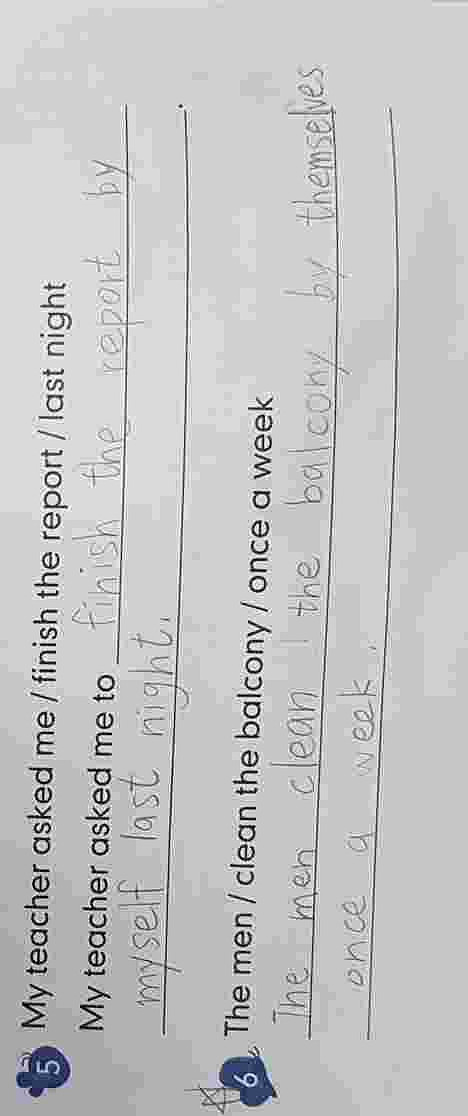 5 My teacher asked me / finish the report / last night
My teacher asked me to finish the report by
myself last night.
6 The men / clean the balcony / once a week
The men clean the balcony by themselves
once a week.